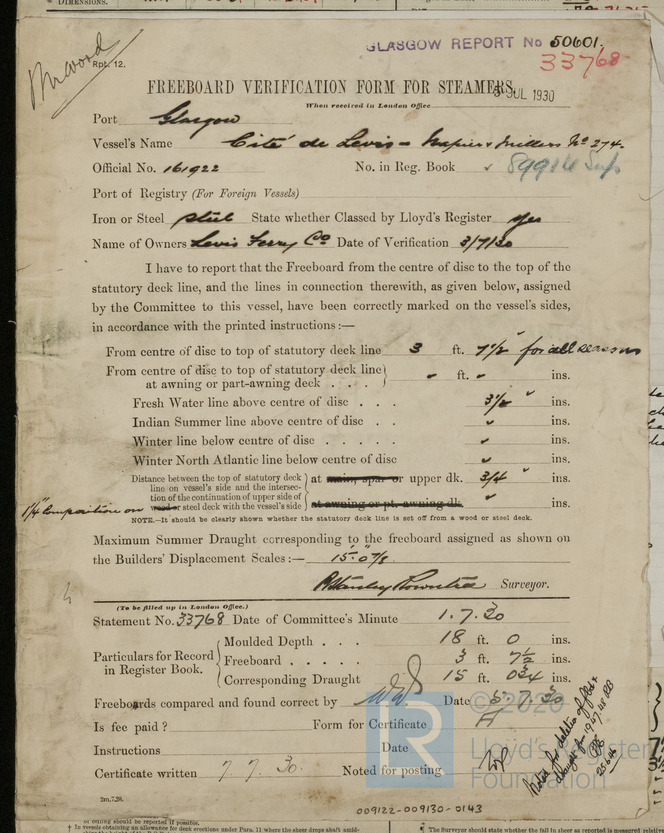 DIMENSIONS.
GLASGOW REPORT No 50601.
33768
Mr Wood
Rpt. 12.
FREEBOARD VERIFICATION FORM FOR STEAMERS.
JUL 1930
When received in London Office
Port Glasgow
Vessel's Name Cité de Levis - Napier & Millers No 274.
Official No. 161922 No. in Reg. Book ✓ 89914 Sup
Port of Registry (For Foreign Vessels)
Iron or Steel Steel State whether Classed by Lloyd's Register Yes
Name of Owners Levis Ferry Co Date of Verification 3/7/30
I have to report that the Freeboard from the centre of disc to the top of the
statutory deck line, and the lines in connection therewith, as given below, assigned
by the Committee to this vessel, have been correctly marked on the vessel's sides,
in accordance with the printed instructions:—
From centre of disc to top of statutory deck line 3 ft. 7 1/2" for all seasons
From centre of disc to top of statutory deck line
at awning or part-awning deck . . . - ft. - ins.
Fresh Water line above centre of disc . . . 3 1/2 " ins.
Indian Summer line above centre of disc . . " ins.
Winter line below centre of disc . . . . . " ins.
Winter North Atlantic line below centre of disc " ins.
Distance between the top of statutory deck
line on vessel's side and the intersec- at main, spar or upper dk. 3/4 " ins.
tion of the continuation of upper side of
1/4" composition on wood or steel deck with the vessel's side at awning or pt. awning dk. " ins.
NOTE.—It should be clearly shown whether the statutory deck line is set off from a wood or steel deck.
Maximum Summer Draught corresponding to the freeboard assigned as shown on
the Builders' Displacement Scales:— 15'-0 7/8
R Stanley Rowntree Surveyor.
(To be filled up in London Office.)
Statement No. 33768 Date of Committee's Minute 1.7.30
Particulars for Record in Register Book.
Moulded Depth . . . 18 ft. 0 ins.
Freeboard . . . . . 3 ft. 7 1/2 ins.
Corresponding Draught 15 ft. 0 3/4 ins.
Freeboards compared and found correct by Date 5.7.30
Is fee paid? Form for Certificate H
Instructions Date
Certificate written 7.7.30. Noted for posting
Noted for deletion of fbd &
25.6.46
© 2020
Lloyd's Register
Foundation
2m.7.28.
009122-009130-0143
 or coming should be reported if possible.
† In vessels obtaining an allowance for deck erections under Para. 11 where the sheer drops abaft amid-